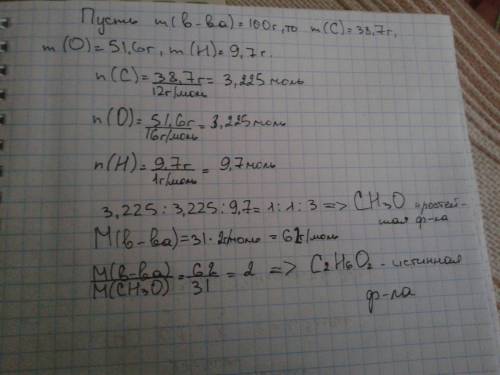 Пусть m(в-ва)=100г, то m(C)=38,7г,
m(O)=51,6г, m(H)=9,7г.
n(C)=38,7г/12г/моль=3,225моль
n(O)=51,6г/16г/моль=3,225моль
n(H)=9,7г/1г/моль=9,7моль
3,225:3,225:9,7=1:1:3=>CH3O простей-
шая ф-ла
M(в-ва)=31·2г/моль=62г/моль
M(в-ва)/M(CH3O)=62/31=2 => C2H6O2-истинная
ф-ла